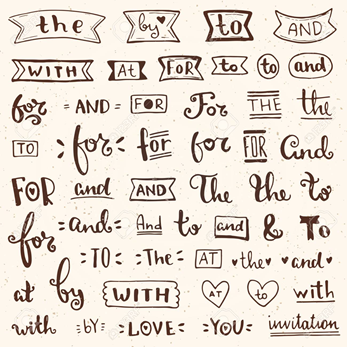 the by to AND
WITH At FOR to to and
for =AND= FOR For THE the
TO for for for FOR And
FOR and AND The the to
for =and= And to and & To
=TO= =The= AT the and
at by WITH AT to with
with =bY= =LOVE= =YOU= invitation